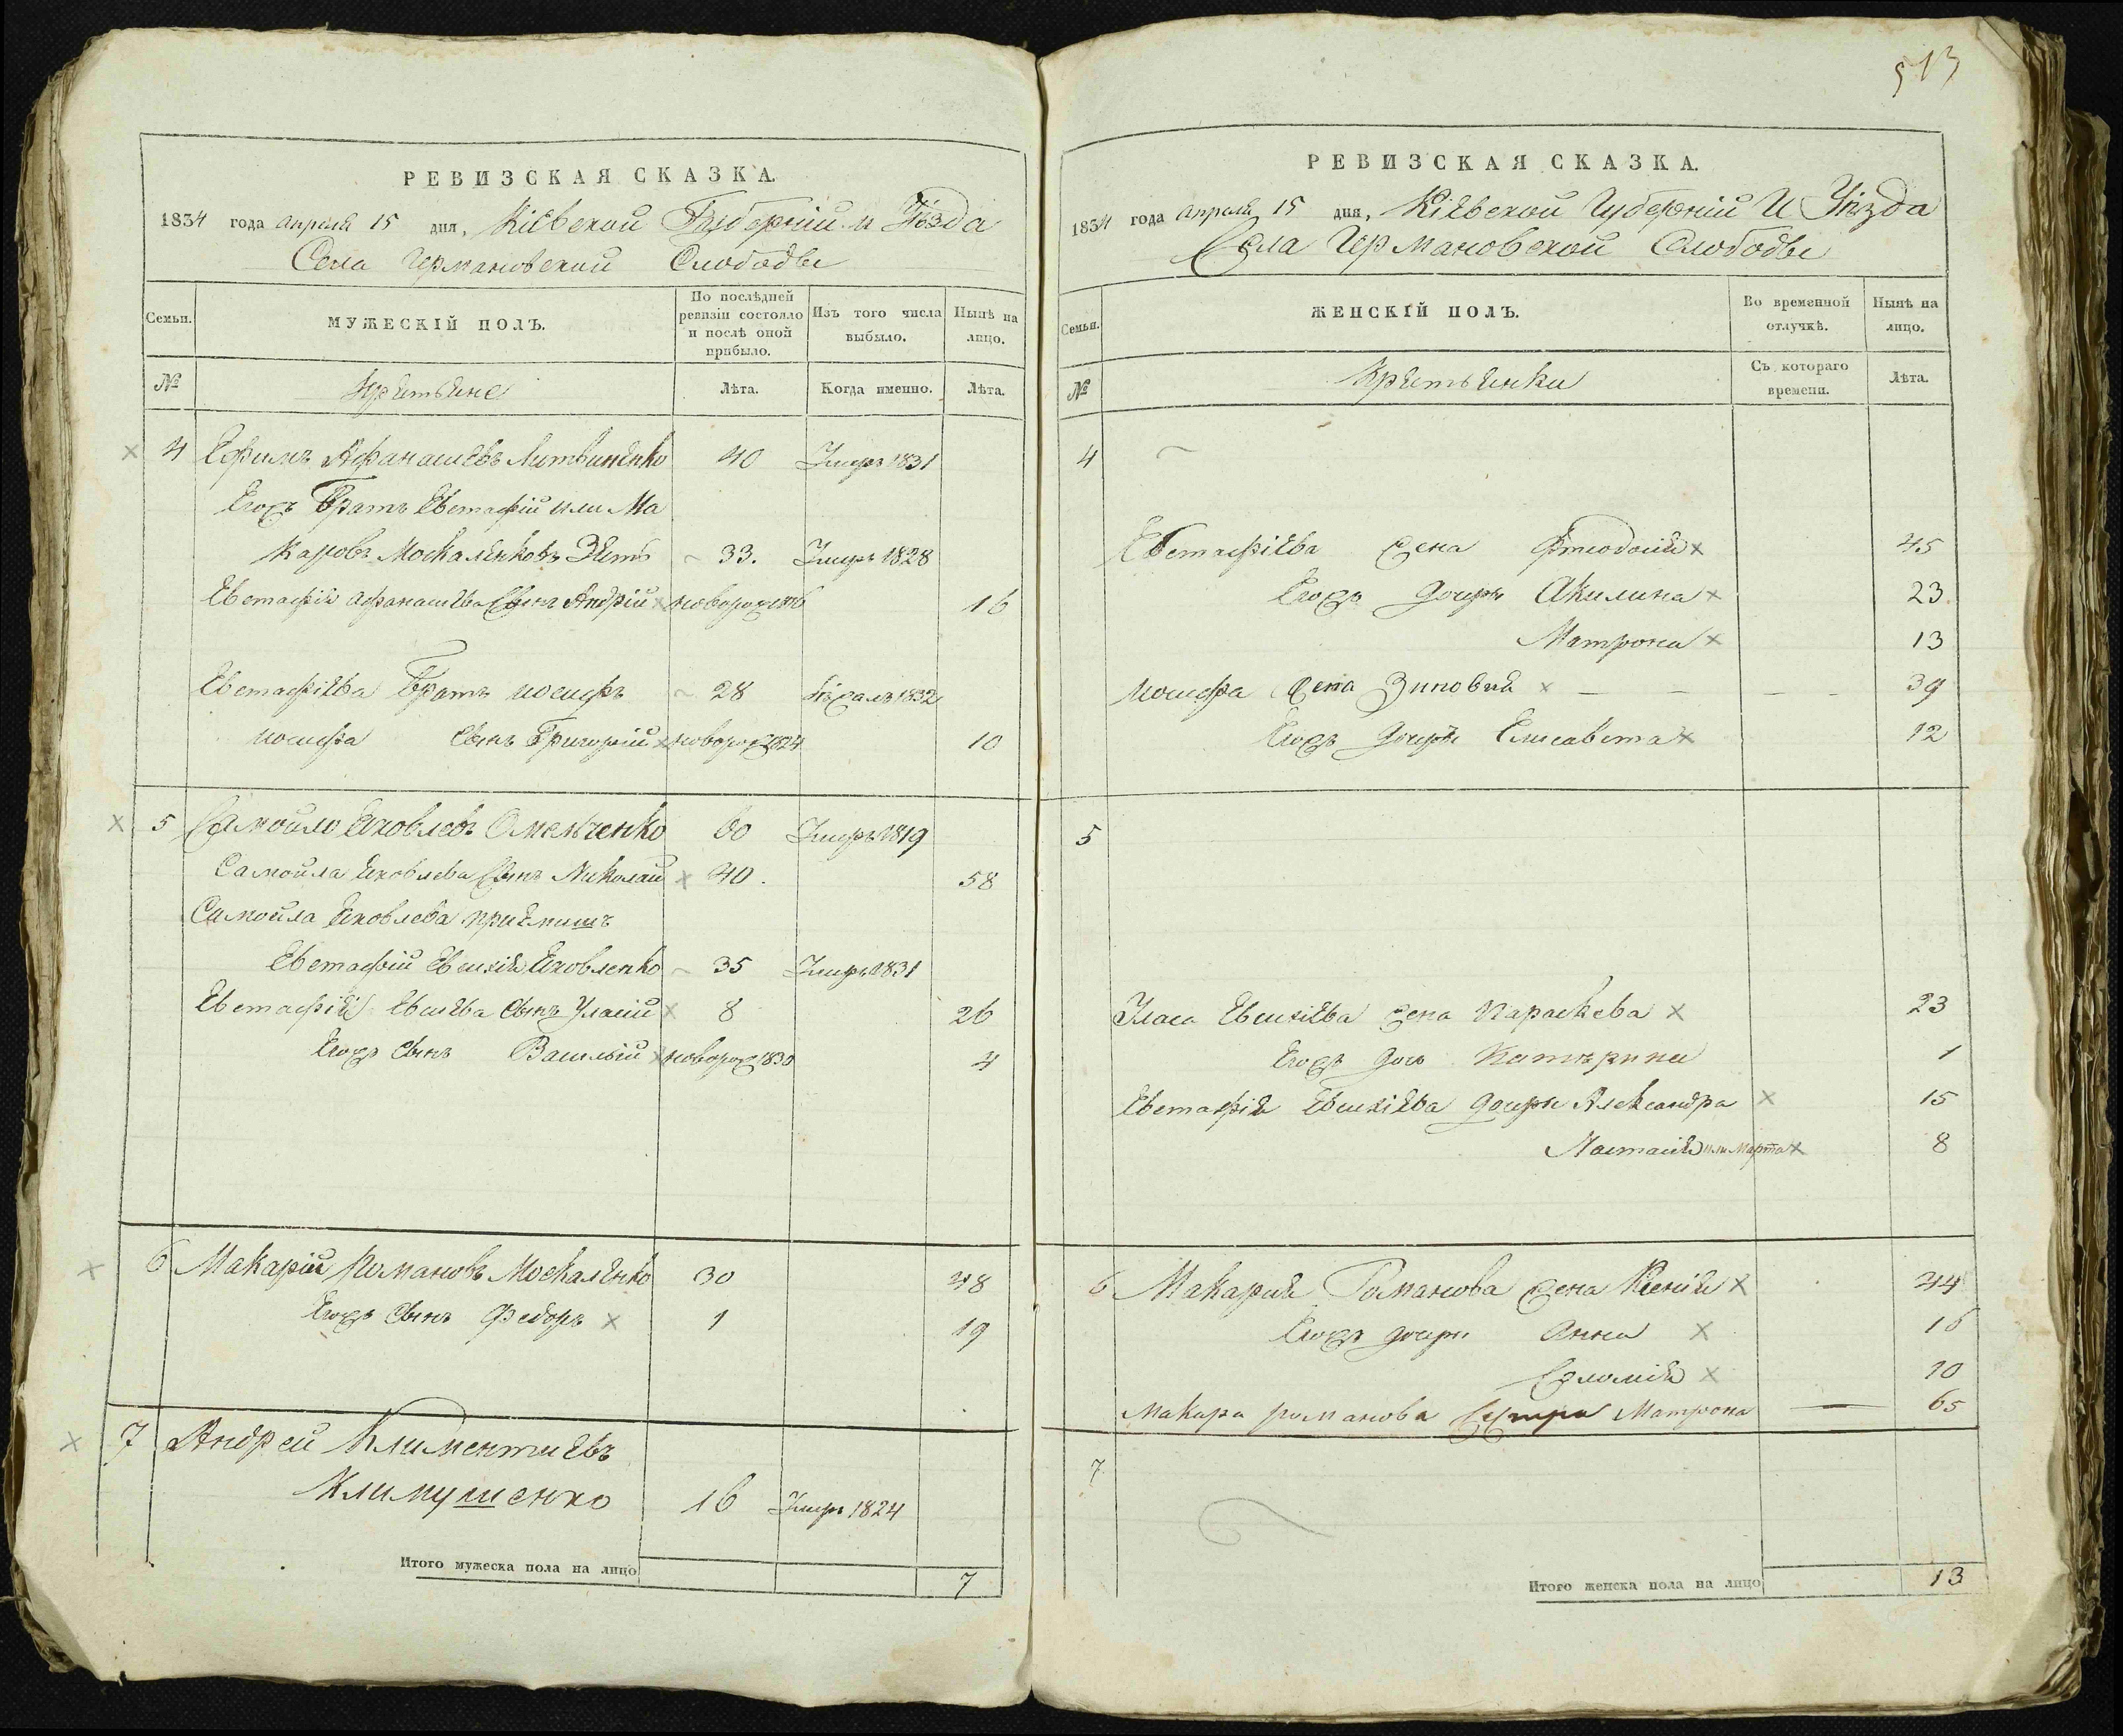 513
РЕВИЗСКАЯ СКАЗКА.
1834 года апреля 15 дня, Кіевской Губерніи и Уѣзда
Села Германовской Слободы
Семьи.
МУЖЕСКІЙ ПОЛЪ.
По послѣдней ревизіи состояло и послѣ оной прибыло.
Изъ того числа выбыло.
Нынѣ на лицо.
№
Крестьяне
Лѣта.
Когда именно.
Лѣта.
4 Ефимъ Афанасиевъ Литвиненко 40 Умеръ 1831
Егожъ Братъ Евстафій или Ма
каровъ Москаленковъ Зять 33. Умеръ 1828
Евстафія Афанасиева Сынъ Андрій новорож 16
Евстафіева Братъ иосифъ 28 1832
иосифа Сынъ Григорій новорож 1824 10
5 Самойло Яковлевъ Омельченко 60 Умеръ 1819
Самойла Яковлева Сынъ Николай 40. 58
Самойла Яковлева приемишъ
Евстафій Евсихіѧ Яковленко 35 Умеръ 1831
Евстафія Сынъ Уласій 8 26
Егожъ Сынъ Василій новорож 1830 4
6 Макарій Романовъ Москаленко 30 48
Егожъ Сынъ Федоръ 1 19
7 Андрей Климентиевъ
Климушенко 16 Умеръ 1824
Итого мужеска пола на лицо 7
РЕВИЗСКАЯ СКАЗКА.
1834 года апреля 15 дня, Кіевской Губерніи и Уѣзда
Села Германовской Слободы
Семьи.
ЖЕНСКІЙ ПОЛЪ.
Во временной отлучкѣ.
Нынѣ на лицо.
№
Крестьянки
Съ котораго времени.
Лѣта.
4
Евстафіева жена 45
Егожъ дочери Акилина 23
Матрона 13
иосифа жена Зиновия 39
Егожъ дочери Елисавета 12
5
Уласа жена Параскева 23
Егожъ дочь Катерина 1
Евстафія дочери Александра 15
Настасия или Марта 8
6 Макария Романова жена Ксения 44
Егожъ дочери Анна 16
Соломія 10
Макара романова Сестра Матрона 65
7
Итого женска пола на лицо 13